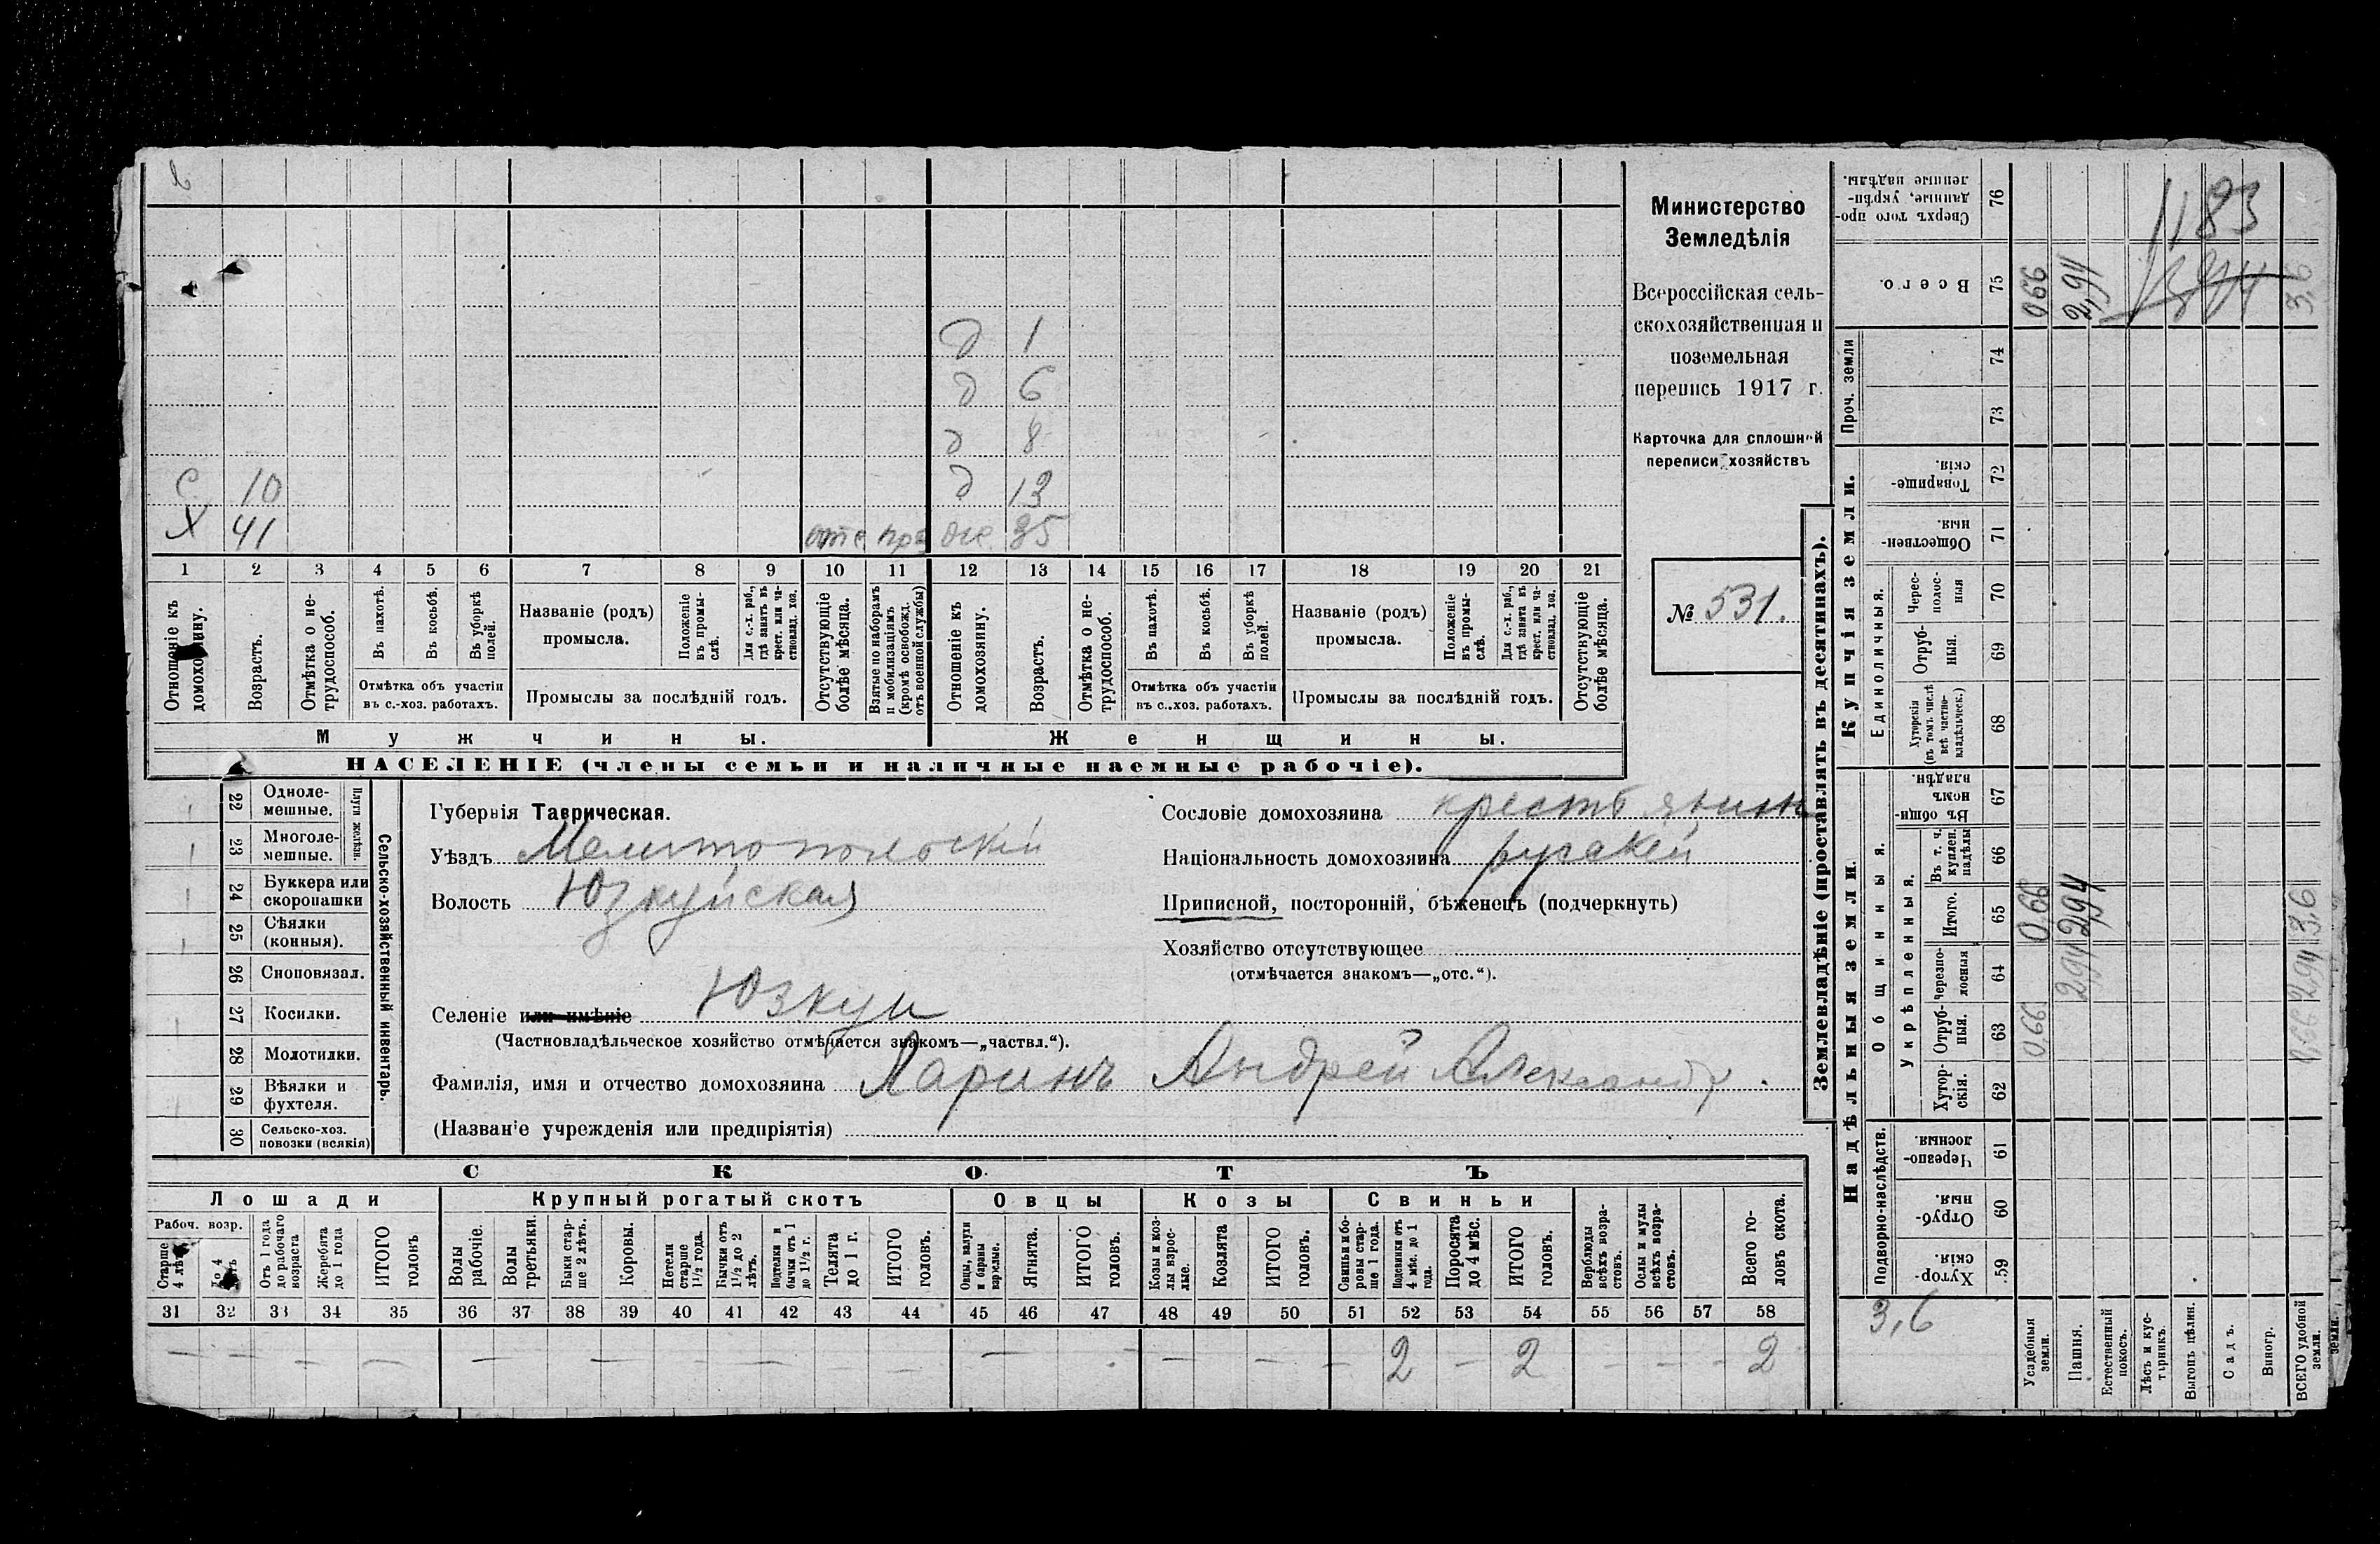 Министерство
Земледѣлія
Всероссійская сель-
скохозяйственная и
поземельная
перепись 1917 г.
Карточка для сплошной
переписи хозяйствъ
№ 531.
д 1
д 6
д 8
с 10 д 13
х 41 отс пра же 35
1 2 3 4 5 6 7 8 9 10 11 12 13 14 15 16 17 18 19 20 21
Отношеніе къ домохозяину.
Возрастъ.
Отмѣтка о не-
трудоспособ.
Въ пахотѣ.
Въ косьбѣ.
Въ уборкѣ полей.
Отмѣтка объ участіи
въ с.-хоз. работахъ.
Названіе (родъ)
промысла.
Положеніе въ промы-
слѣ.
Для с.-х. раб.,
гдѣ занятъ въ
крест. или ча-
стновлад. хоз.
Промыслы за послѣдній годъ.
Отсутствующіе
болѣе мѣсяца.
Взятые по наборамъ
и мобилизаціямъ
(кромѣ освобожд.
отъ военной службы)
Отношеніе къ
домохозяину.
Возрастъ.
Отмѣтка о не-
трудоспособ.
Въ пахотѣ.
Въ косьбѣ.
Въ уборкѣ
полей.
Отмѣтка объ участіи
въ с..хоз. работахъ.
Названіе (родъ)
промысла.
Положеніе
въ промы-
слѣ.
Для с.-х. раб.,
гдѣ занята въ
крест. или ча-
стновлад. хоз.
Промыслы за послѣдній годъ.
Отсутствующіе
болѣе мѣсяца.
Мужчины.
Женщины.
НАСЕЛЕНІЕ (члены семьи и наличные наемные рабочіе).
Сельско-хозяйственный инвентарь.
Плуги желѣзн.
22 Одноле-
мешные.
23 Многоле-
мешные.
24 Буккера или
скоропашки
25 Сѣялки
(конныя).
26 Сноповязал.
27 Косилки.
28 Молотилки.
29 Вѣялки и
фухтеля.
30 Сельско-хоз.
повозки (всякія)
Губернія Таврическая.
Уѣздъ Мелитопольскій
Волость Юзкуйская
Селеніе или имѣніе Юзкуи
(Частновладѣльческое хозяйство отмѣчается знакомъ—„частвл.“).
Фамилія, имя и отчество домохозяина Ларинъ Андрей Александр.
(Названіе учрежденія или предпріятія)
Сословіе домохозяина крестьянинъ
Національность домохозяина русскій
Приписной, посторонній, бѣженецъ (подчеркнуть)
Хозяйство отсутствующее
(отмѣчается знакомъ—„отс.“).
СКОТЪ
Лошади
Рабоч. возр.
Старше
4 лѣтъ
До 4
лѣтъ
Отъ 1 года
до рабочаго
возраста
Жеребята
до 1 года
ИТОГО
головъ
Крупный рогатый скотъ
Волы
рабочіе.
Волы
третьяки.
Быки стар-
ше 2 лѣтъ.
Коровы.
Нетели
старше
1½ года.
Бычки отъ
1½ до 2
лѣтъ.
Подтелки и
бычки отъ 1
до 1½ г.
Телята
до 1 г.
ИТОГО
головъ.
Овцы
Овцы, валухи
и бараны
взрослые.
Ягнята.
ИТОГО
головъ.
Козы
Козы и коз-
лы взрос-
лые.
Козлята
ИТОГО
головъ.
Свиньи
Свиньи и бо-
ровы стар-
ше 1 года.
Подсвинки отъ
4 мѣс. до 1
года.
Поросята
до 4 мѣс.
ИТОГО
головъ.
Верблюды
всѣхъ возра-
стовъ.
Ослы и мулы
всѣхъ возра-
стовъ.
Всего го-
ловъ скота.
31 32 33 34 35 36 37 38 39 40 41 42 43 44 45 46 47 48 49 50 51 52 53 54 55 56 57 58
— — — — — — — — — — — — — 2 — 2 — — — 2
Землевладѣніе (проставлять въ десятинахъ).
Купчія земли.
Проч. земли
Надѣльныя земли.
Единоличныя.
Общинныя.
Укрѣпленныя.
Подворно-наслѣдств.
Сверхъ того про-
данные, укрѣп-
ленные надѣлы. 76
Всего. 75 0,66 2,94 3,6
1183
74
73
Товарище-
скія. 72
Обществен-
ныя. 71
Черес-
полос-
ныя 70
Отруб-
ныя. 69
Хуторскія
(въ томъ числѣ
всѣ частно-
владѣльческ.) 68
Въ общин-
номъ
владѣн. 67
Въ т. ч.
куплен.
надѣлы 66
Итого. 65 0,66 2,94 3,6
Черезпо-
лосныя 64 2,94 2,94
Отруб-
ныя. 63 0,66 0,66
Хутор-
скія. 62
Черезпо-
лосныя. 61
Отруб-
ныя. 60
Хутор-
скія. 59
3,6
Усадебныя
земли.
Пашня.
Естественный
покосъ.
Лѣсъ и кус-
тарникъ.
Выгонъ цѣлин.
Садъ.
Виногр.
ВСЕГО удобной
земли.
земли.